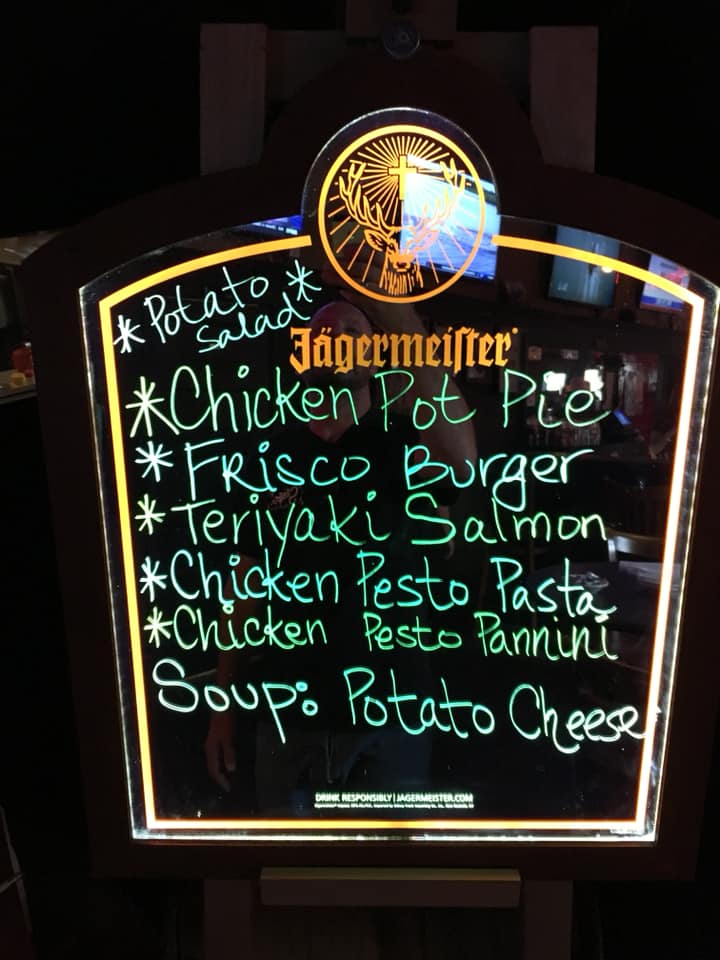 * Potato *
Salad
Jägermeiſter
*Chicken Pot Pie
* Frisco Burger
* Teriyaki Salmon
*Chicken Pesto Pasta
*Chicken Pesto Pannini
Soup: Potato Cheese
DRINK RESPONSIBLY | JAGERMEISTER.COM